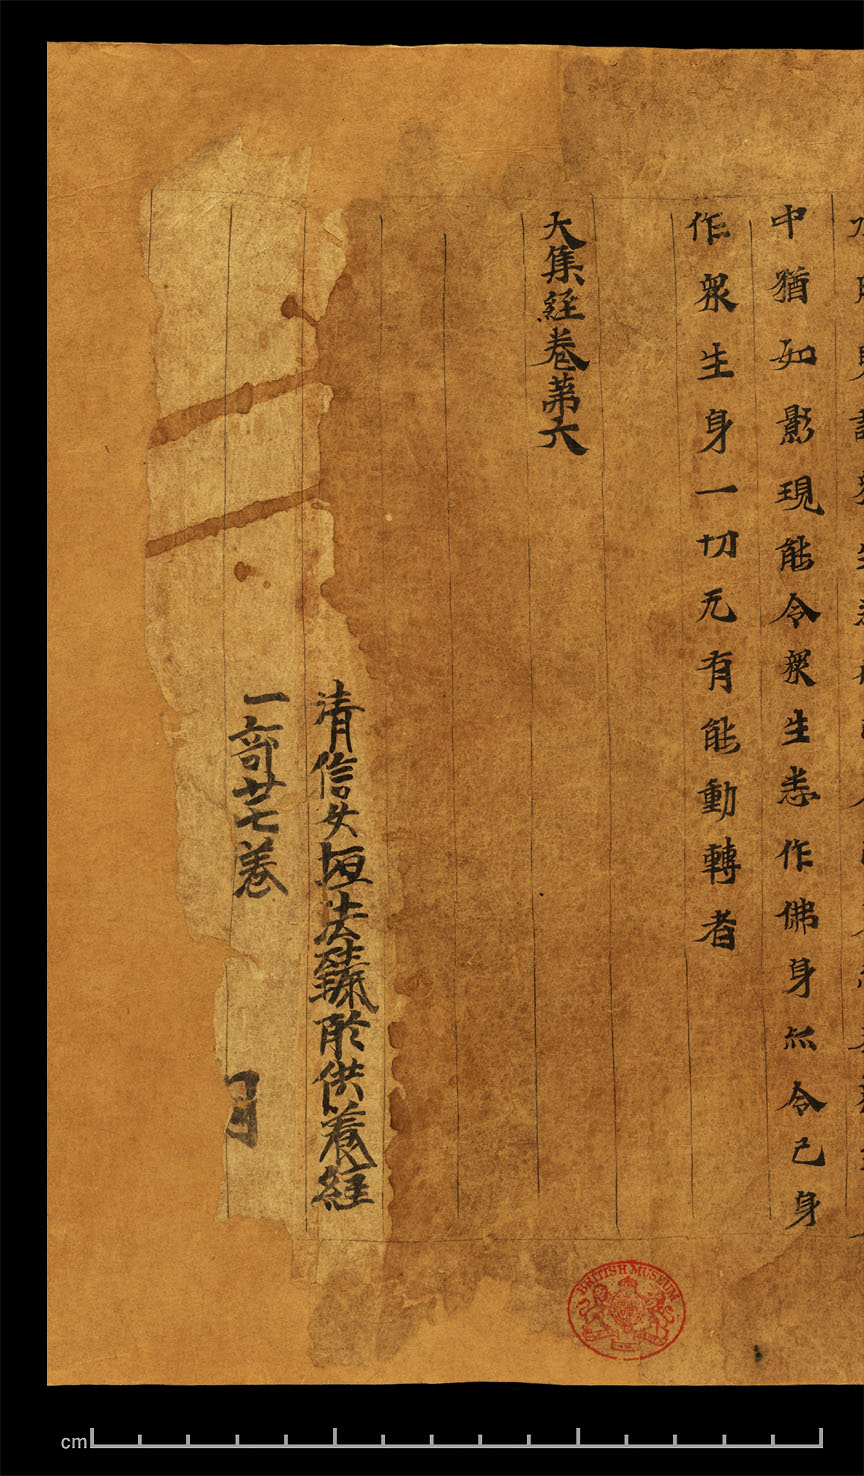 中猶如影現能令衆生悉作佛身然令已身
作衆生身一切无有能動轉者
大集經卷第六
清信女垣法 所供養經
一部廿七卷
月
BRITISH MUSEUM
cm